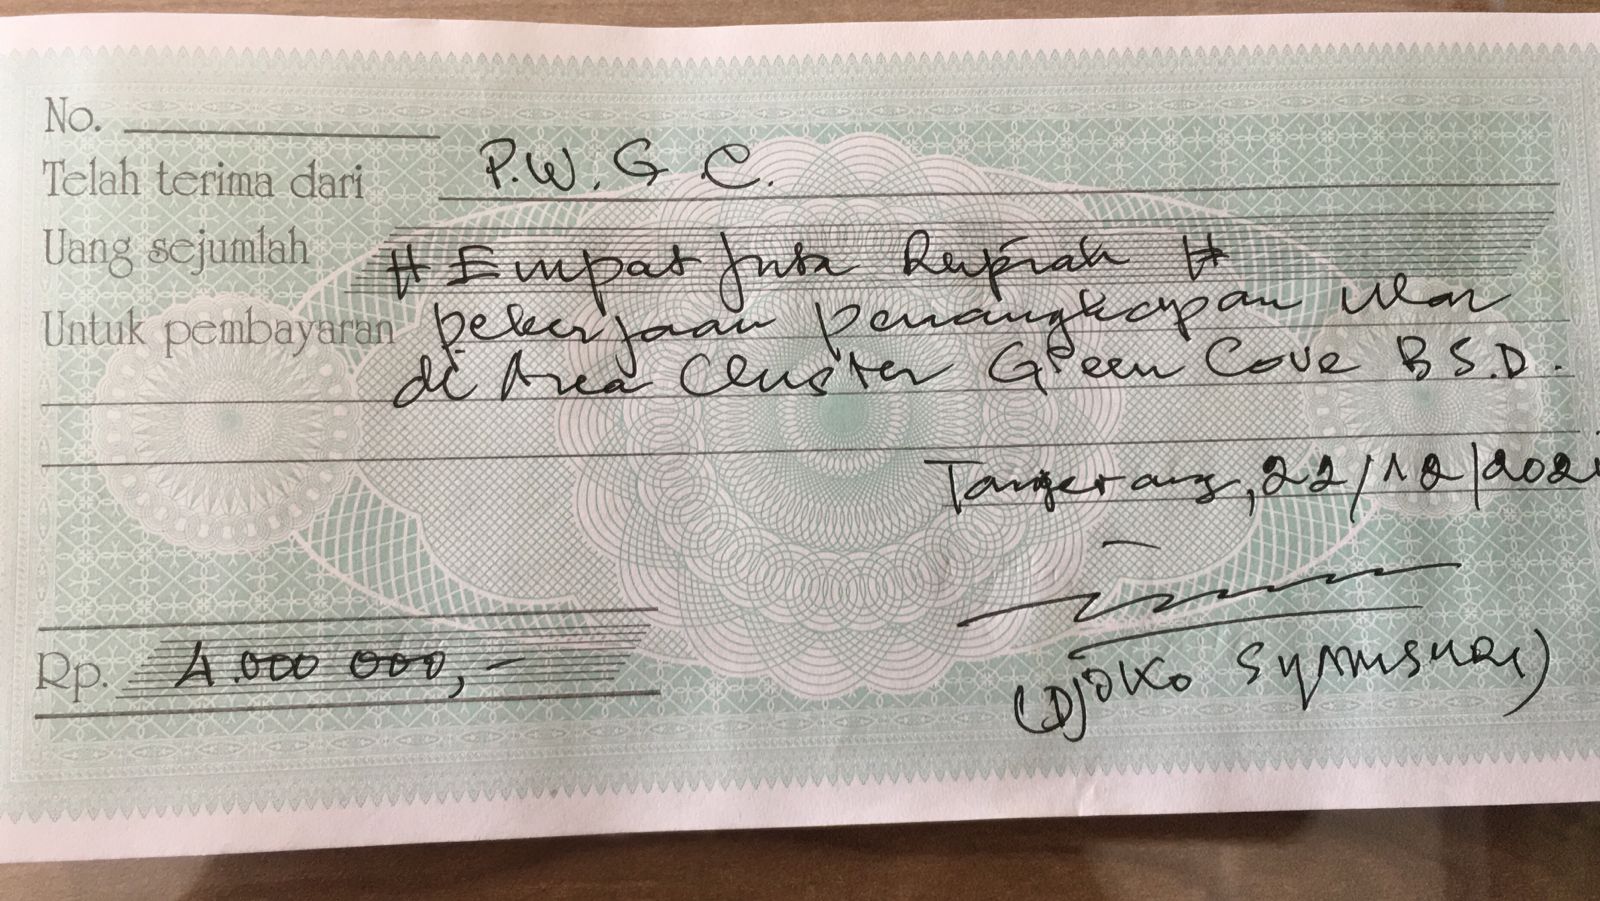 No.
Telah terima dari P.W.G C.
Uang sejumlah # Empat Juta Rupiah #
Untuk pembayaran pekerjaan penangkapan ular
di Area Cluster Green Cove BS.D.
Tangerang, 22/12/202
Rp. 4.000 000,-
(Djoko Syamsuri)